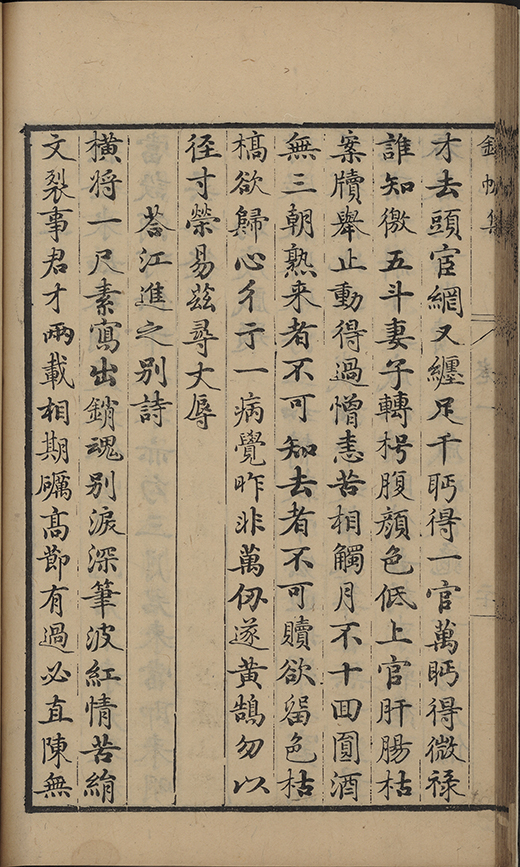 才去頭宦網又纏足千眄得一官萬眄得微禄
誰知徼五斗妻子轉枵腹顔色低上官肝腸枯
案牘舉止動得過憎恚苦相觸月不十囬圓酒
無三朝熟来者不可知去者不可贖欲留色枯
槁欲歸心彳亍一病覺昨非萬仞遂黄鵠勿以
径寸榮易茲尋丈辱
荅江進之别詩
横将一尺素寫出銷魂别淚深筆波紅情苦絹
文裂事君才兩載相期礪髙節有過必直陳無